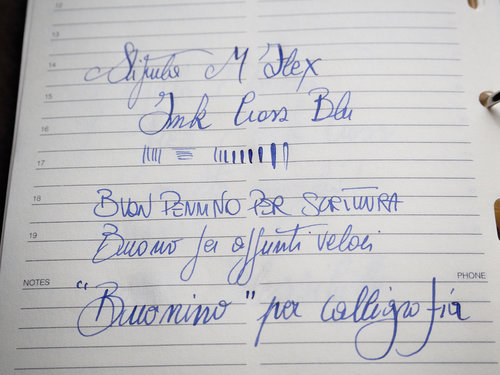 12
13
14
Stipula M Flex
15
Ink Cross Blu
16
17
18
BUON PENNINO PER SCRITTURA
19
Buono per appunti veloci
NOTES
PHONE
"Buonino" per calligrafia